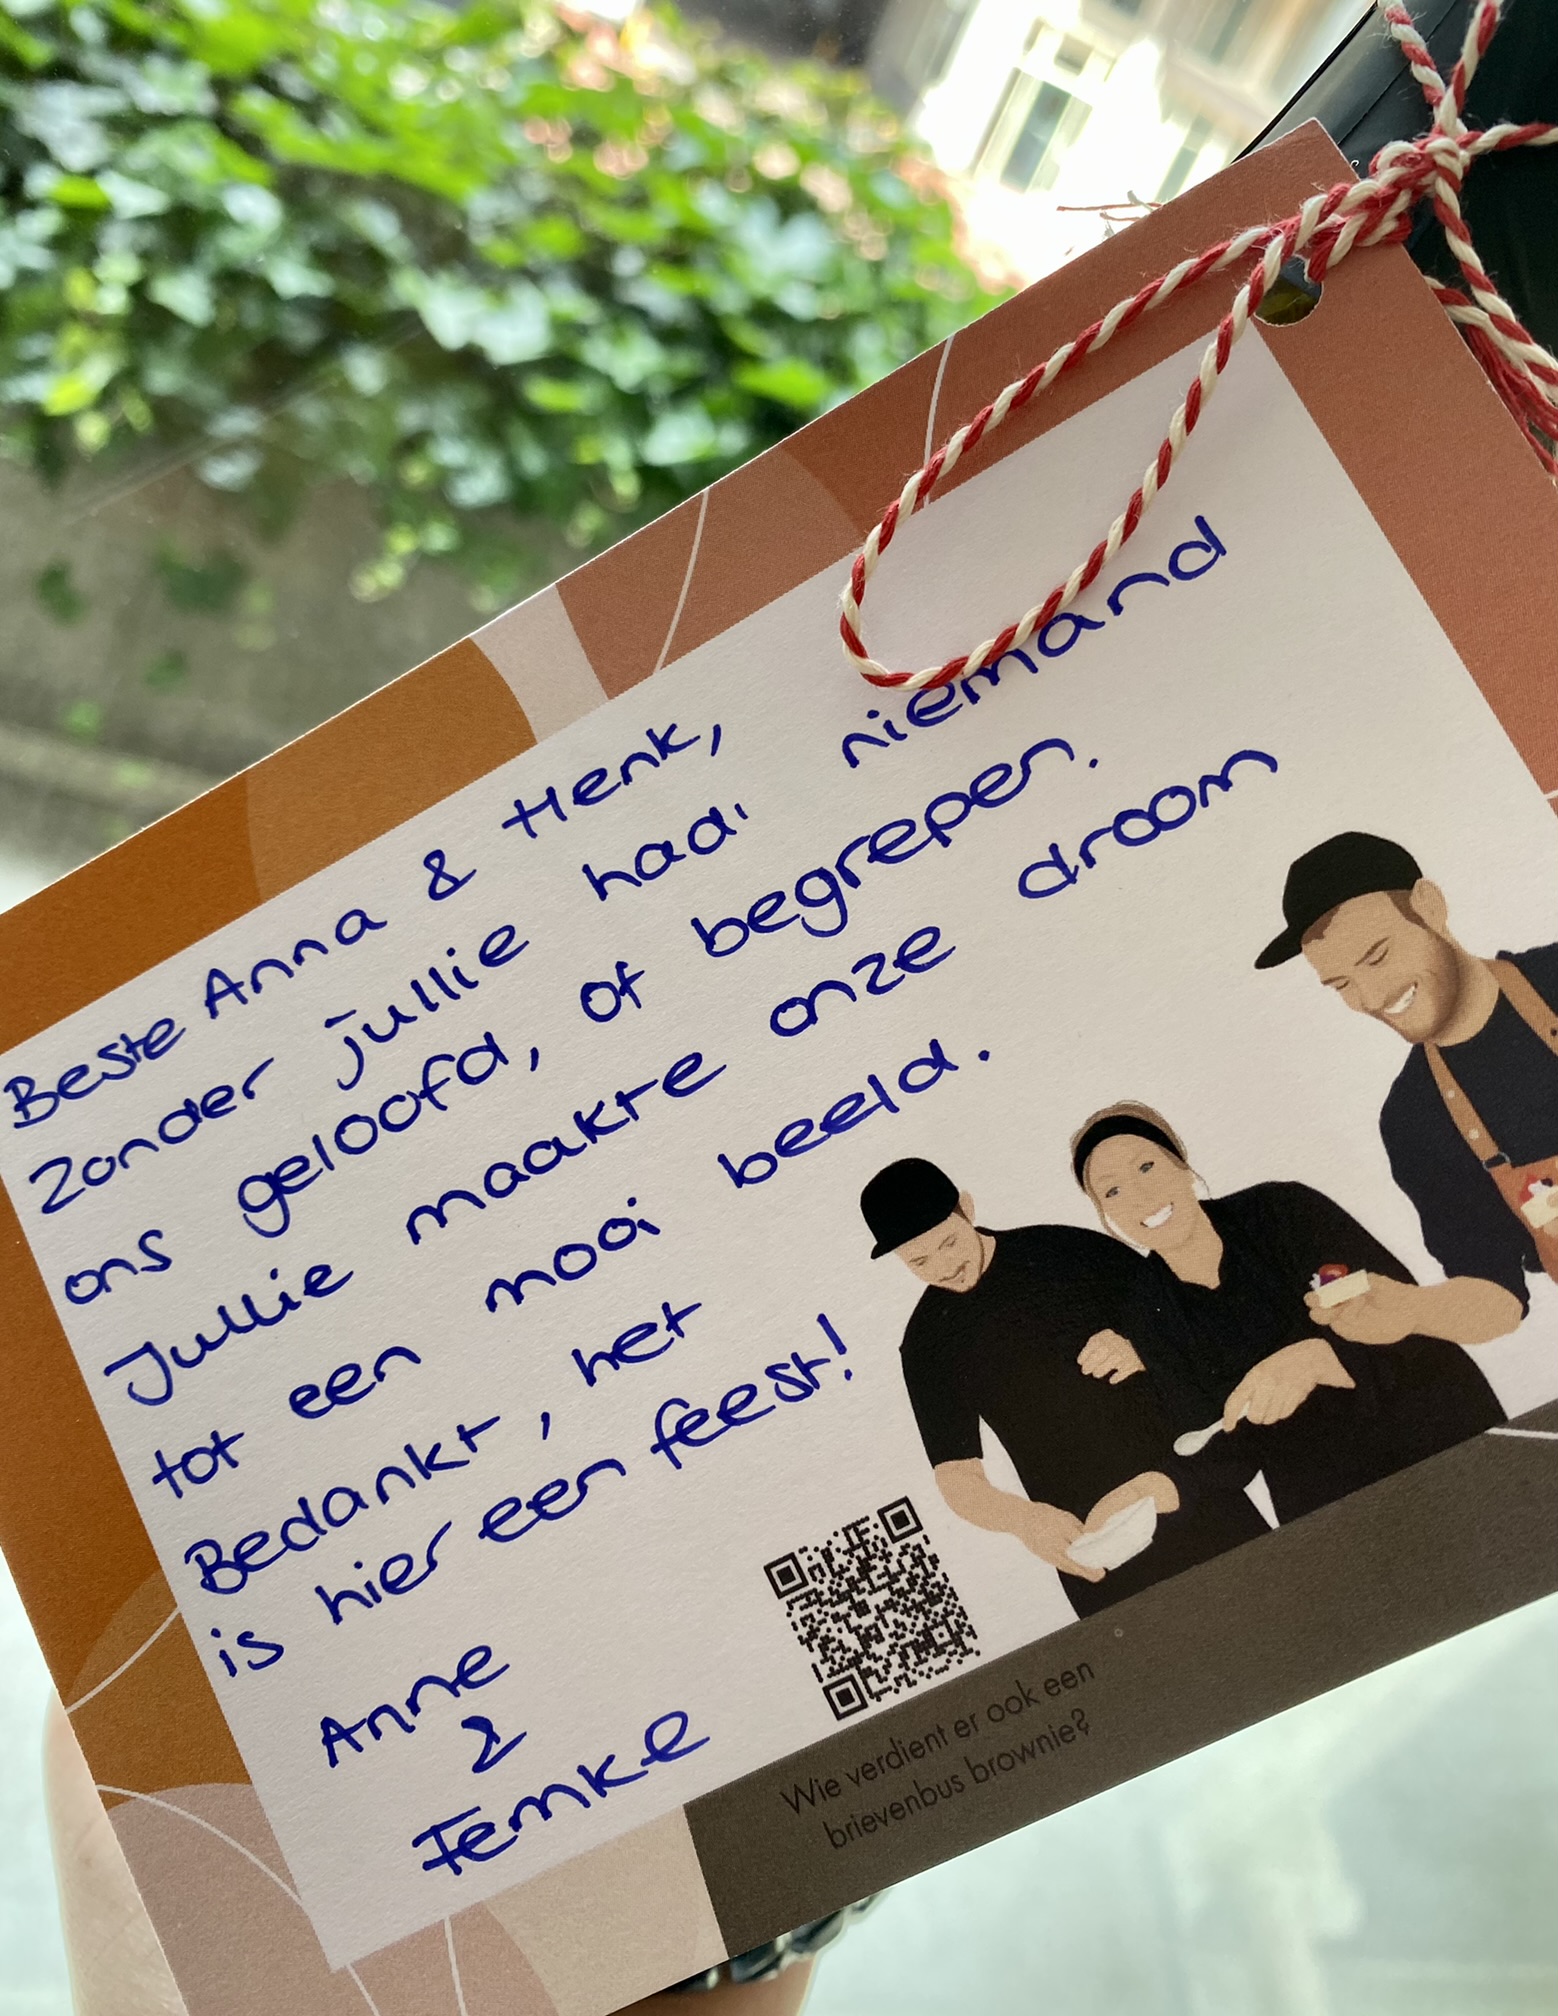 Beste Anna & Henk,
Zonder jullie had niemand
ons geloofd, of begrepen.
Jullie maakte onze droom
tot een mooi beeld.
Bedankt, het
is hier een feest!
Anne
&
Femke
Wie verdient er ook een
brievenbus brownie?